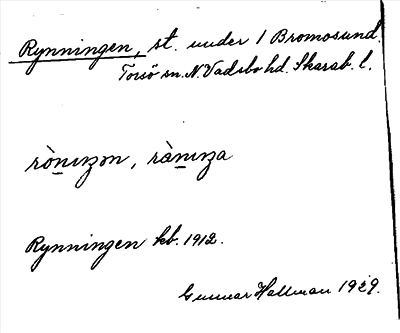 Rynningen, st. under 1 Bromosund.
Torsö sn. N. Vadsbo hd. Skarab. l.
ròniŋən, ràniŋa
Rynningen kb. 1912.
Gunnar Hallman 1929.